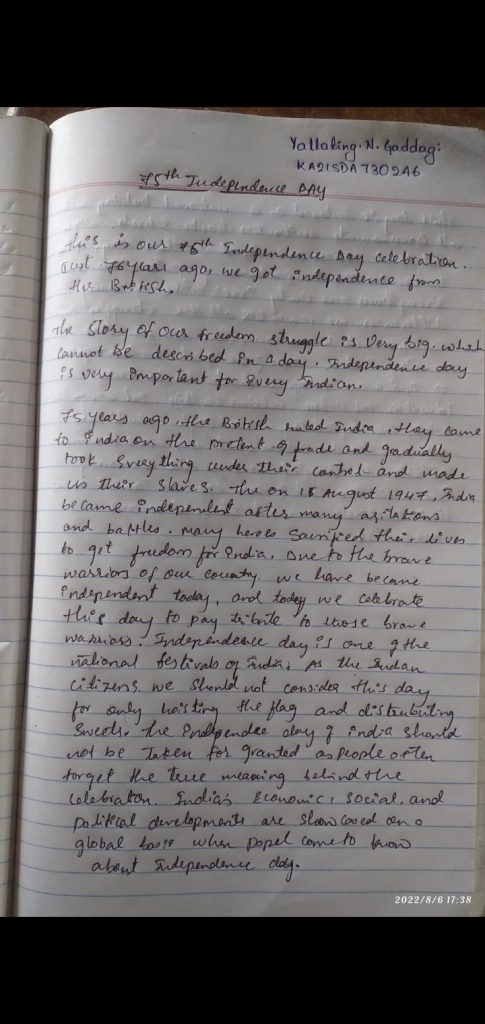 Yallaling. N. Gaddagi
KA21SDA730246
75th Independence DAY
This is our 75th Independence Day celebration.
Just 76 years ago, we got independence from
the British.
The Story of our freedom struggle is very big. which
cannot be described in a day. Independence day
is very important for Every Indian.
75 years ago, the British ruled India, they came
to India on the pretent of trade and gradually
took Everything under their control and made
us their Slaves. The on 15 August 1947, India
became independent after many agitations
and battles. Many heroes sacrified their lives
to get freedom for India. Due to the brave
warriors of our country, we have become
independent today, and today we celebrate
this day to pay tribute to those brave
warriors. Independence day is one of the
national festivals of India. As the Indian
citizens. we should not consider this day
for only hoisting the flag and distributing
Sweets. The Independee day of india should
not be Taken for granted as people often
forget the true meaning behind the
celebration. India's Economic, Social, and
political developments are Showcased on a
global when popel come to know
about Independence day.
2022/8/6 17:38